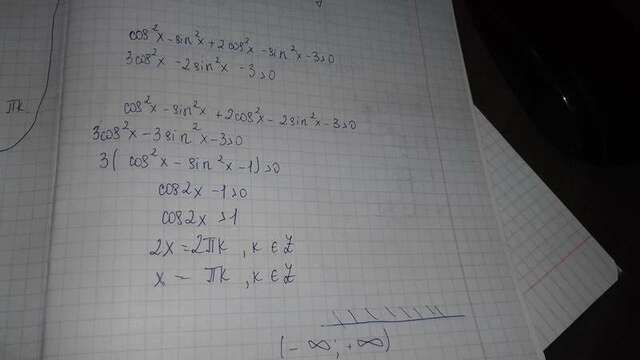 cos²x - sin²x + 2cos²x - sin²x - 3>0
3cos²x - 2sin²x - 3>0
πk
cos²x - sin²x + 2cos²x - 2sin²x - 3>0
3cos²x - 3sin²x - 3>0
3(cos²x - sin²x - 1)>0
cos2x - 1>0
cos2x >1
2x = 2πk, k ∈ Z
x = πk, k ∈ Z
(-∞; +∞)